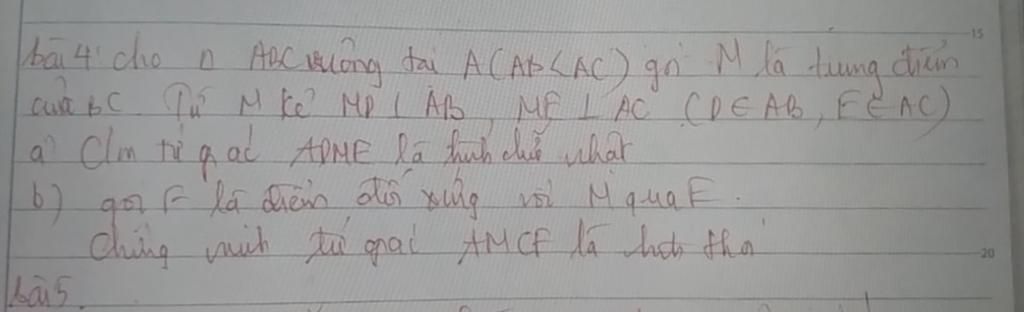 bài 4: cho Δ ABC vuông tại A (AB < AC) gọi M là trung điểm
của BC Từ M kẻ MD ⊥ AB, ME ⊥ AC (D ∈ AB, E ∈ AC)
a) C/m tứ giác ADME là hình chữ nhật
b) gọi F là điểm đối xứng với M qua E.
Chứng minh tứ giác AMCF là hình thoi
bài 5.
15
20